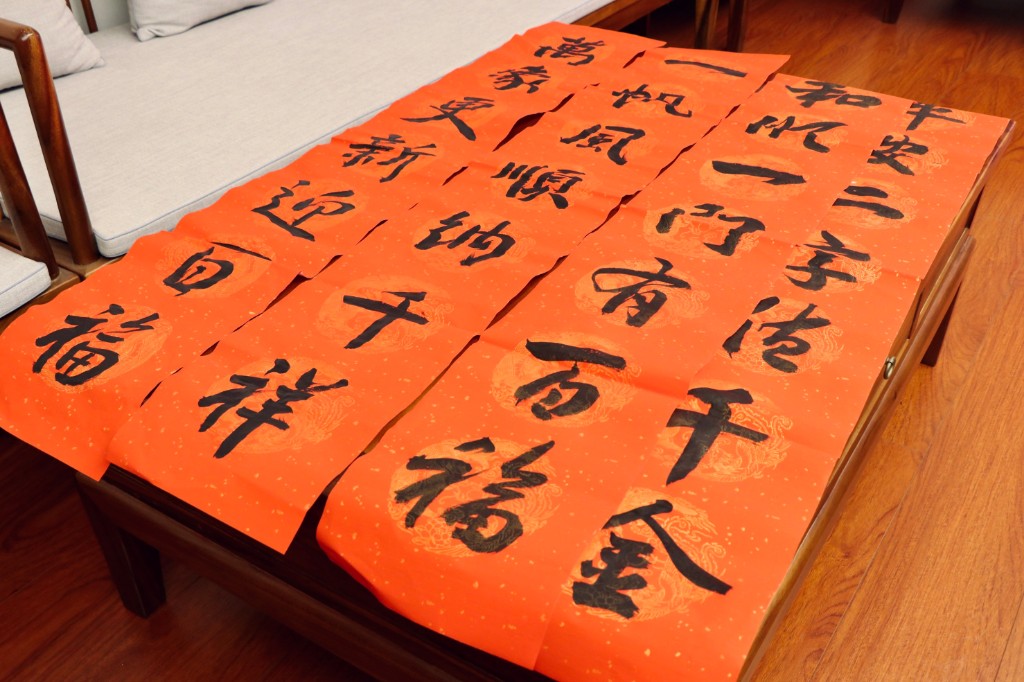 平安二字值千金
和順一門有百福
一帆風順納千祥
萬象更新迎百福